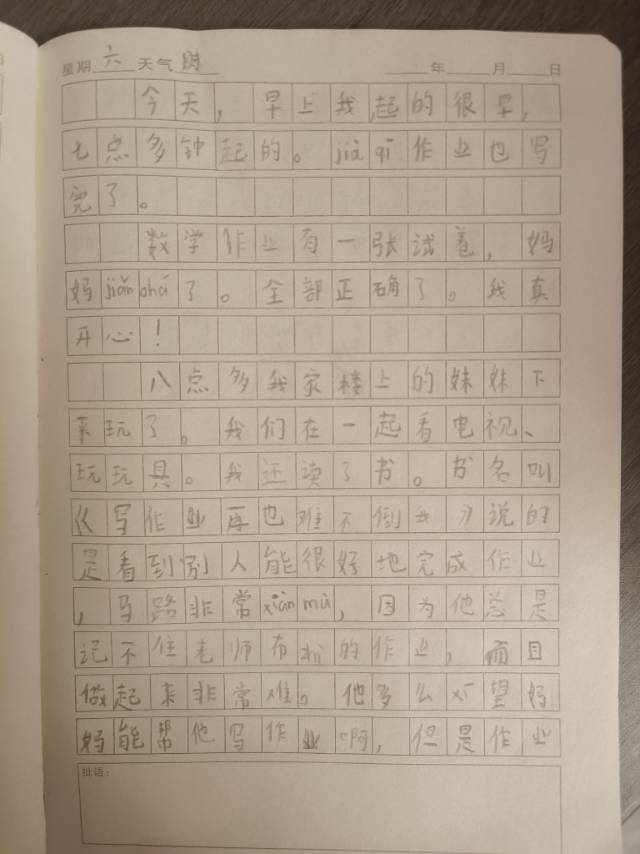 星期六天气阴 年 月 日
今天，早上我起的很早，
七点多钟起的。jià qī作业也写
完了。
数学作业有一张试卷，妈
妈jiǎn chá了。全部正确了。我真
开心！
八点多我家楼上的妹妹下
来玩了。我们在一起看电视、
玩玩具。我还读了书。书名叫
《写作业再也难不倒我》说的
是看到别人能很好地完成作业
，马路非常xiàn mù，因为他总是
记不住老师布打的作业，而且
做起来非常难。他多么希望妈
妈能帮他写作业啊，但是作业
批语：